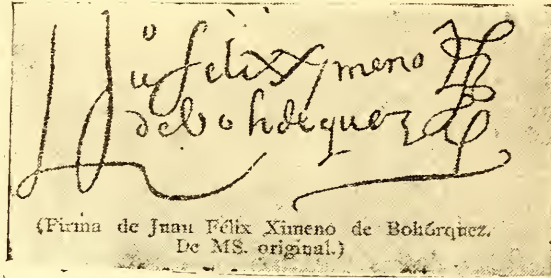 Juº felix Ximeno
de bohorquez
(Firma de Juan Félix Ximeno de Bohórquez.
De MS. original.)